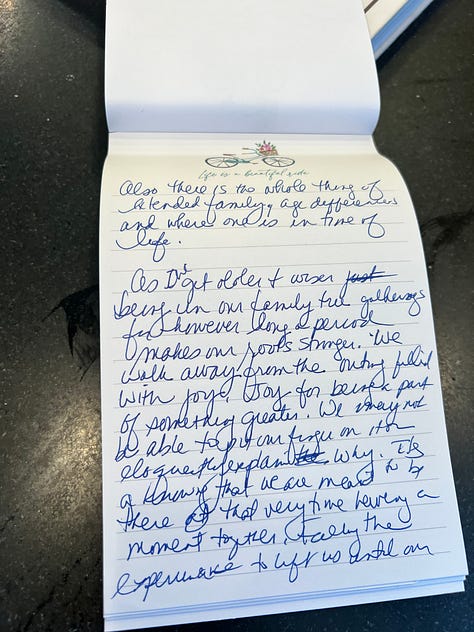 Life is a beautiful ride
Also there is the whole thing of
extended family, age differences
and where one is in time of
life.
As I've get older & wiser just
being in our family tree gatherings
for however long a period
makes our roots stronger. We
walk away from the outing filled
with joy. Joy for being a part
of something greater. We may not
be able to put our finger on it or
eloquently explain the why. It's
a knowing that we are meant to be
there at that very time having a
moment together. the
experience to lift us until our